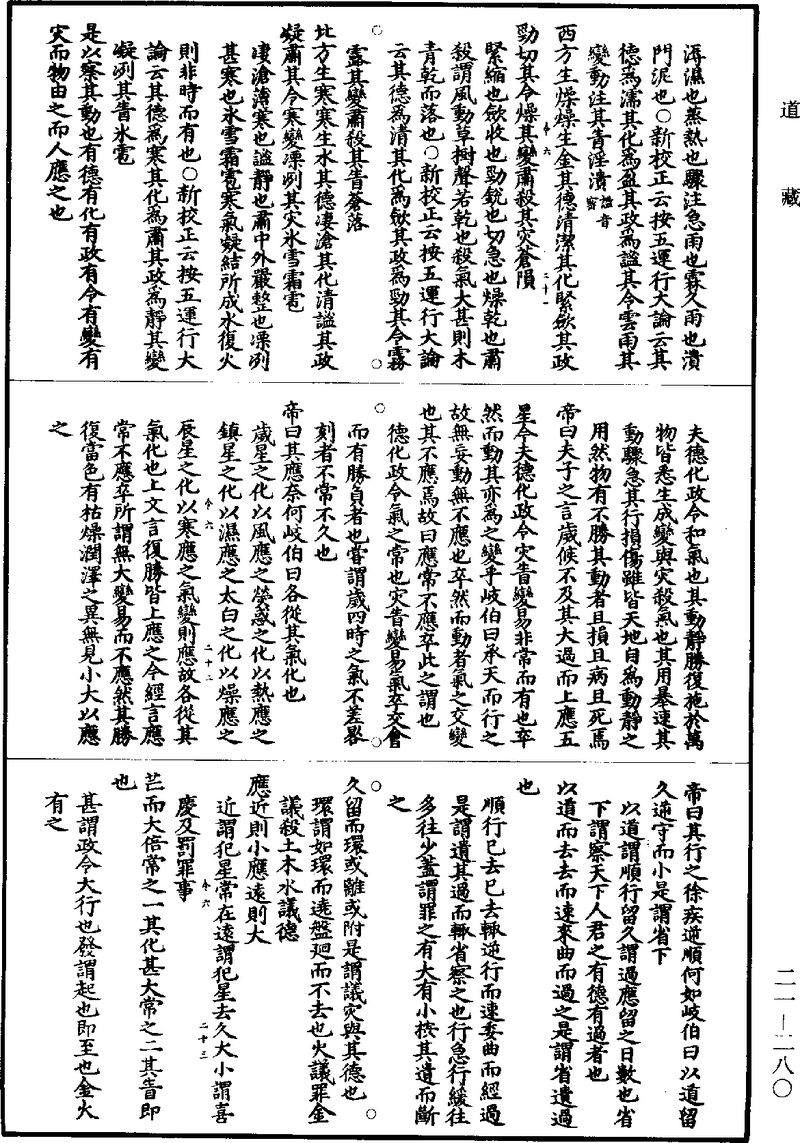 道藏
溽濕也蒸熱也驟注急雨也霖久雨也潰
門泥也○新校正云按五運行大論云其
德為濡其化為盈其政為謐其令雲雨其
變動注其眚淫潰謐音密
西方生燥燥生金其德清潔其化緊斂其政
勁切其令燥其變肅殺其灾蒼隕
卷六 二十一
緊縮也斂收也勁銳也切急也燥乾也肅
殺謂風動草樹聲若乾也殺氣大甚則木
青乾而落也○新校正云按五運行大論
云其德為清其化為斂其政為勁其令霧
露其變肅殺其眚蒼落
北方生寒寒生水其德凄滄其化清謐其政
凝肅其令寒其變凓冽其灾氷雪霜雹
凄滄薄寒也謐靜也肅中外嚴整也凓冽
甚寒也氷雪霜雹寒氣凝結所成水復火
則非時而有也○新校正云按五運行大
論云其德為寒其化為肅其政為靜其變
凝冽其眚氷雹
是以察其動也有德有化有政有令有變有
灾而物由之而人應之也
夫德化政令和氣也其動靜勝復施於萬
物皆悉生成變與灾殺氣也其用暴速其
動驟急其行損傷雖皆天地自為動靜之
用然物有不勝其動者且損且病且死焉
帝曰夫子之言歲候不及其大過而上應五
星今夫德化政令灾眚變易非常而有也卒
然而動其亦為之變乎岐伯曰承天而行之
故無妄動無不應也卒然而動者氣之交變
也其不應焉故曰應常不應卒此之謂也
德化政令氣之常也灾眚變易氣卒交會
而有勝負者也嘗謂歲四時之氣不差晷
刻者不常不久也
帝曰其應奈何岐伯曰各從其氣化也
歲星之化以風應之熒惑之化以熱應之
鎮星之化以濕應之太白之化以燥應之
卷六 二十二
辰星之化以寒應之氣變則應故各從其
氣化也上文言復勝皆上應之今經言應
常不應卒所謂無大變易而不應然其勝
復當色有枯燥潤澤之異無見小大以應
之
帝曰其行之徐疾逆順何如岐伯曰以道留
久逆守而小是謂省下
以道謂順行留久謂過應留之日數也省
下謂察天下人君之有德有過者也
以道而去去而速來曲而過之是謂省遺過
也
順行已去已去輒逆行而速委曲而經過
是謂遺其過而輒省察之也行急行緩往
多往少蓋謂罪之有大有小按其遺而斷
之
久留而環或離或附是謂議灾與其德也
環謂如環而遶盤廻而不去也火議罪金
議殺土木水議德
應近則小應遠則大
近謂犯星常在遠謂犯星去久大小謂喜
慶及罰罪事
卷六 二十三
芒而大倍常之一其化甚大常之二其眚即
也
甚謂政令大行也發謂起也即至也金火
有之
二一—二八〇